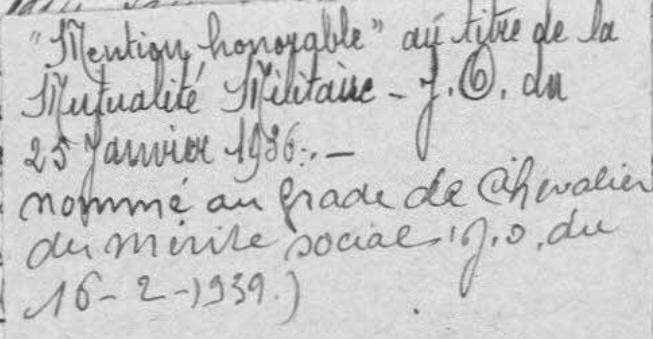 "Mention honorable" au titre de la
Mutualité Militaire - J.O. du
25 Janvier 1936.-
nommé au grade de Chevalier
du mérite social (J.O. du
16-2-1939.)